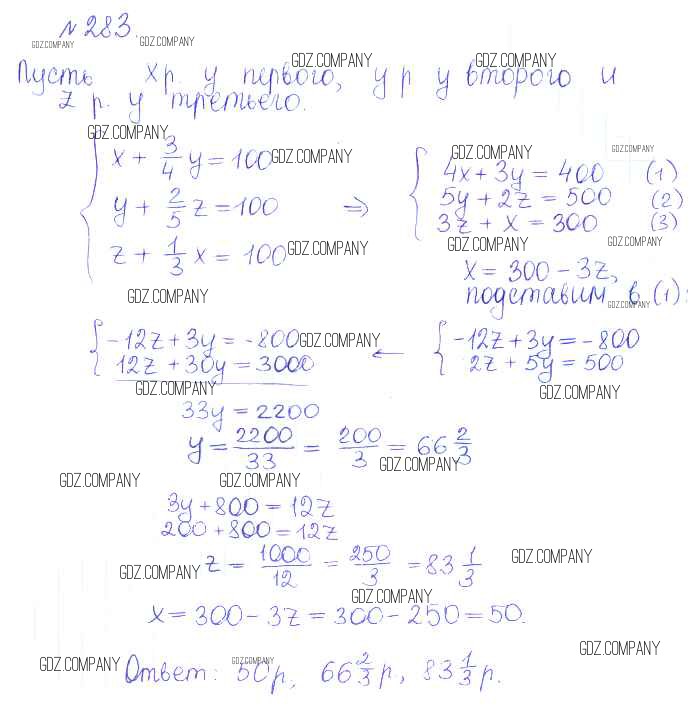 № 283.
GDZ.COMPANY GDZ.COMPANY
GDZ.COMPANY GDZ.COMPANY
Пусть x р. у первого, y р у второго и
z р. у третьего.
GDZ.COMPANY GDZ.COMPANY GDZ.COMPANY
x + 3/4 y = 100 GDZ.COMPANY 4x + 3y = 400 (1)
y + 2/5 z = 100 ⇒ 5y + 2z = 500 (2)
3z + x = 300 (3)
z + 1/3 x = 100 GDZ.COMPANY GDZ.COMPANY GDZ.COMPANY
x = 300 - 3z,
GDZ.COMPANY подставим в (1):
GDZ.COMPANY
-12z + 3y = -800 GDZ.COMPANY -12z + 3y = -800
12z + 30y = 3000 ← 2z + 5y = 500
GDZ.COMPANY GDZ.COMPANY
33y = 2200
y = 2200/33 = 200/3 = 66 2/3
GDZ.COMPANY
GDZ.COMPANY GDZ.COMPANY
3y + 800 = 12z
200 + 800 = 12z
GDZ.COMPANY z = 1000/12 = 250/3 = 83 1/3 GDZ.COMPANY
GDZ.COMPANY
x = 300 - 3z = 300 - 250 = 50.
GDZ.COMPANY
GDZ.COMPANY GDZ.COMPANY
Ответ: 50 р, 66 2/3 р, 83 1/3 р.